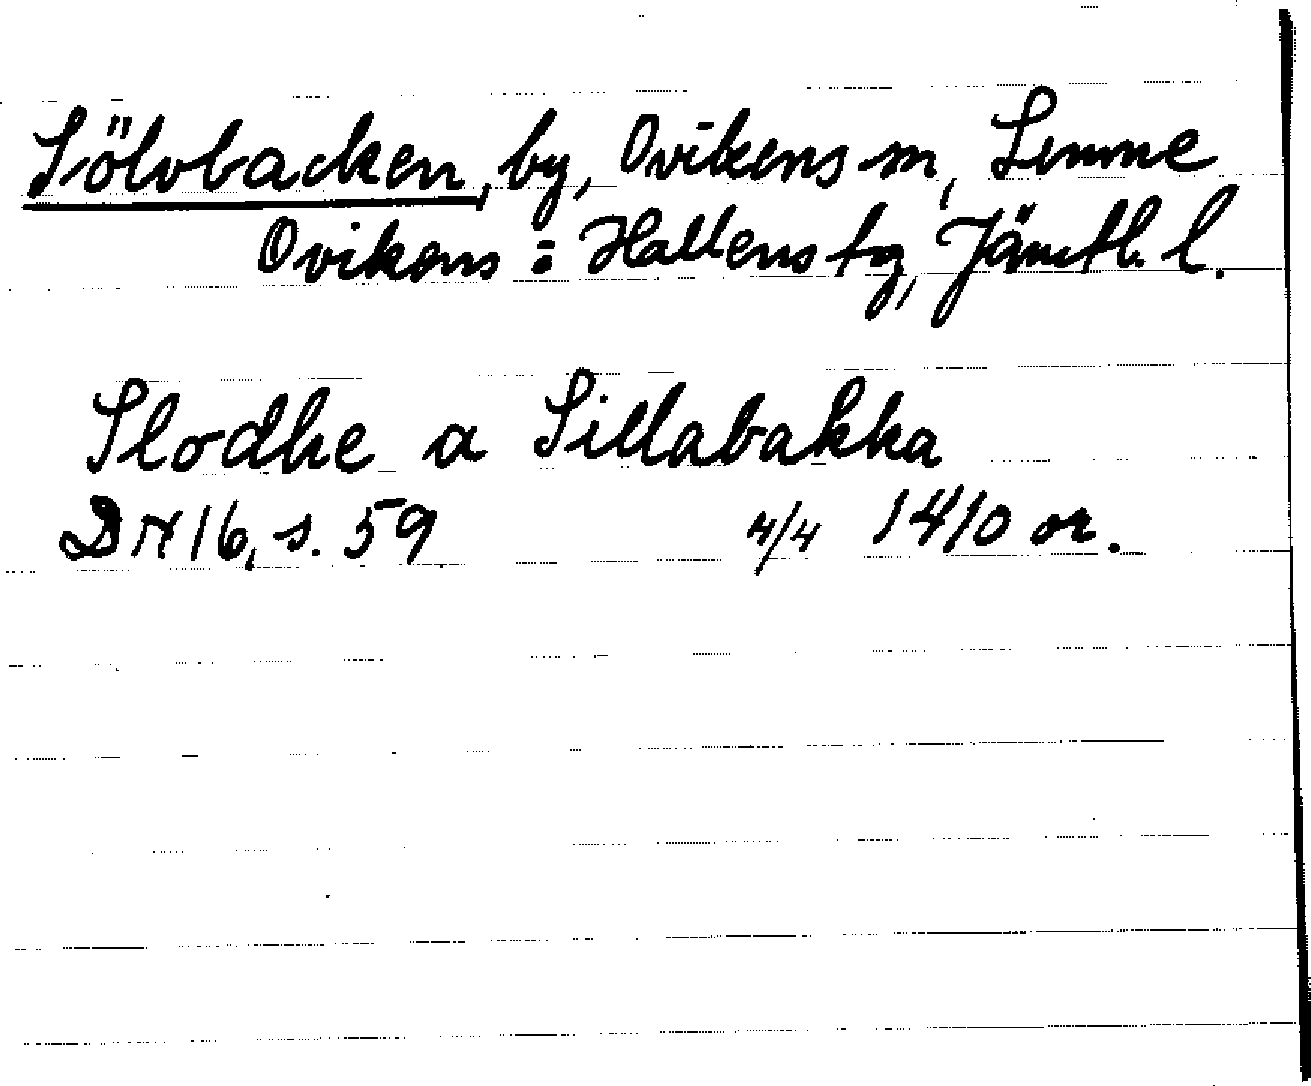 Sölvbacken, by, Ovikens sn, Sunne
Ovikens : Hallens tg, Jämtl. l.
Slodhe a Sillabakka
DN 16, s. 59 4/4 1410 or.